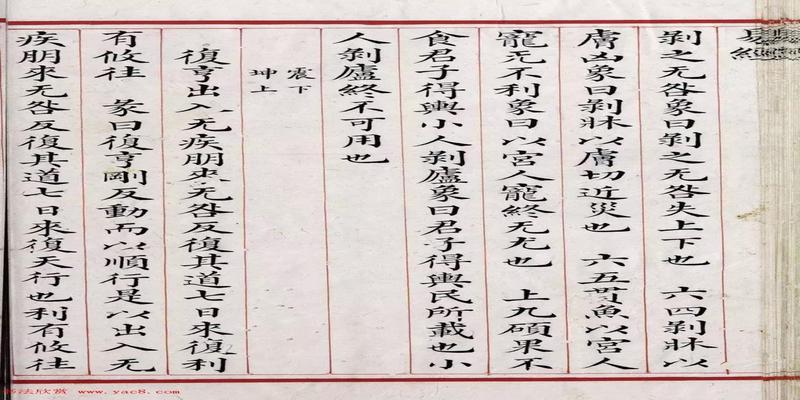 易經
剝之无咎象曰剝之无咎失上下也 六四剝牀以
膚凶象曰剝牀以膚切近災也 六五貫魚以宮人
寵无不利象曰以宮人寵終无尤也 上九碩果不
食君子得輿小人剝廬象曰君子得輿民所載也小
人剝廬終不可用也
震下
坤上
復亨出入无疾朋來无咎反復其道七日來復利
有攸往 彖曰復亨剛反動而以順行是以出入无
疾朋來无咎反復其道七日來復天行也利有攸往
法欣赏 www.yac8.com